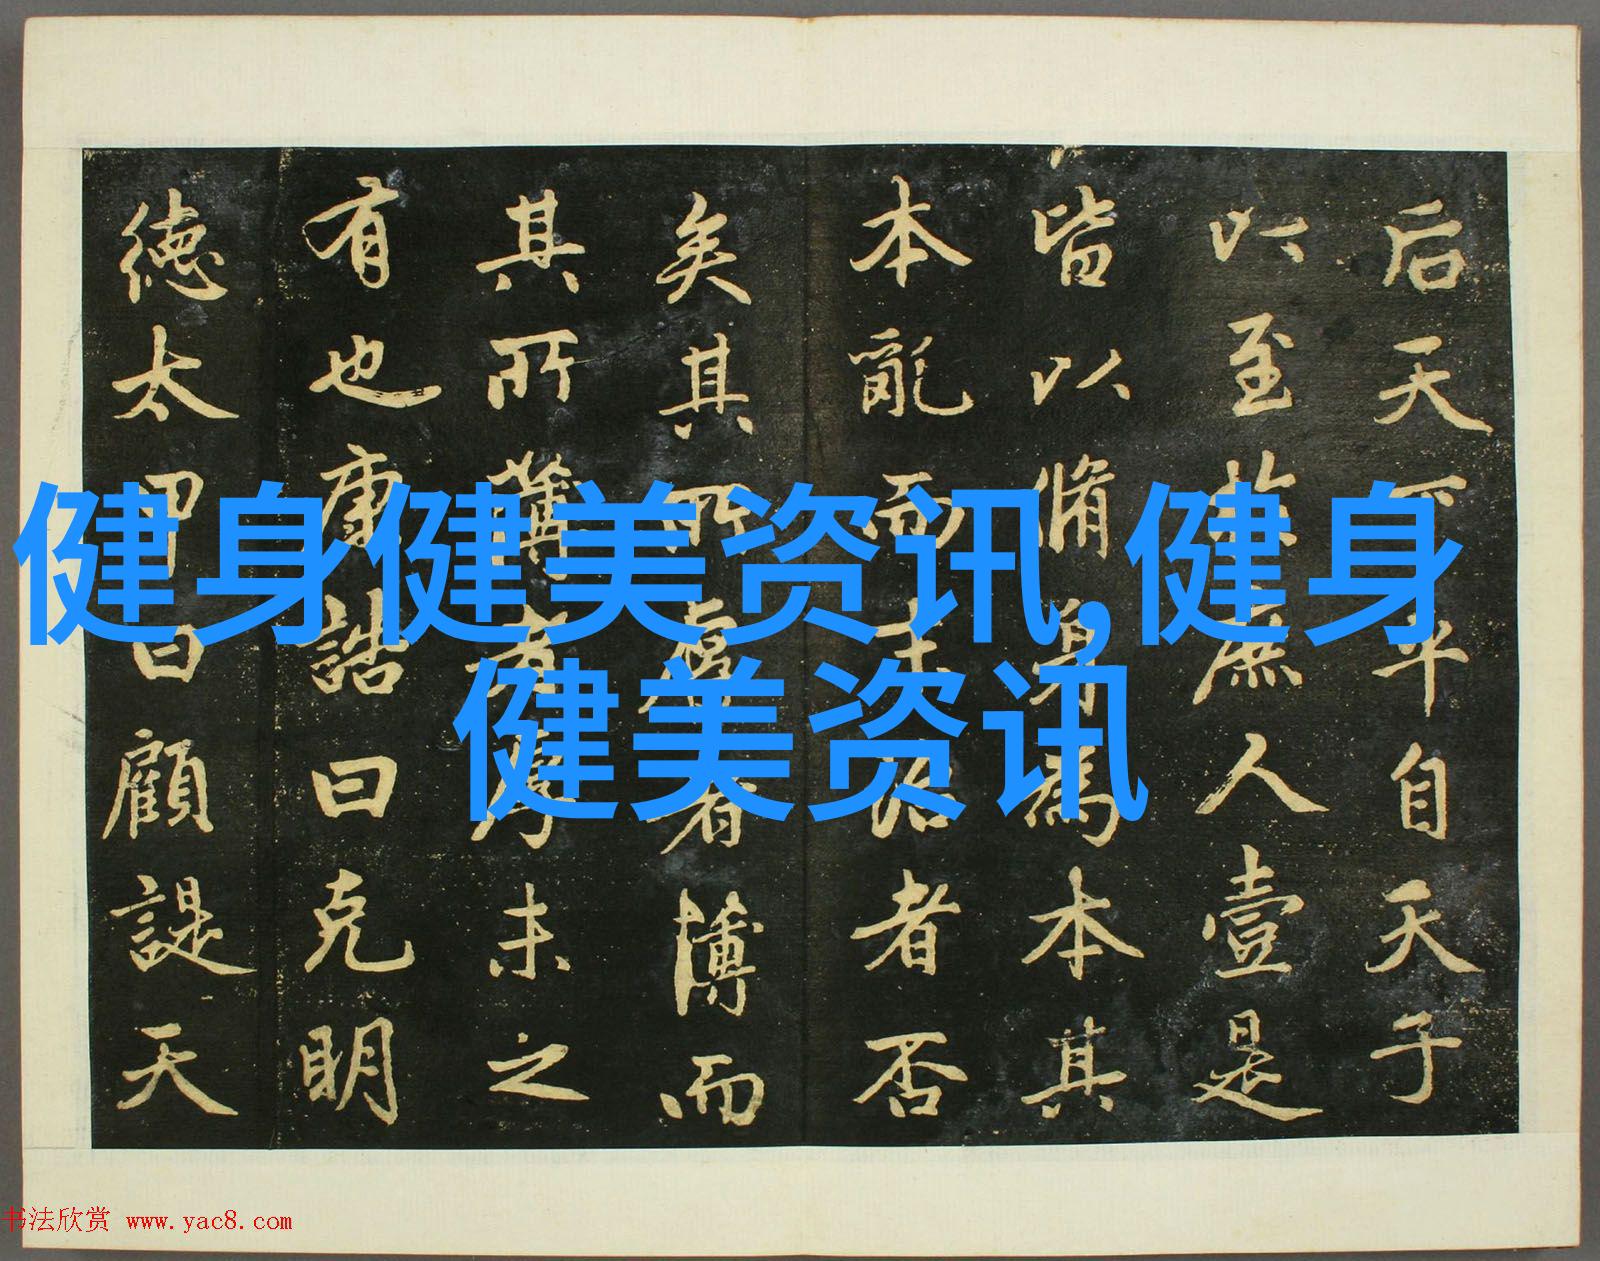 后天下平自天子
以至於庶人壹是
皆以脩身為本其
本亂而末治者否
矣其所厚者薄而
其所薄者厚未之
有也康誥曰克明
徳太甲曰顧諟天
健身健美资讯,健身
健美资讯
书法欣赏 www.yac8.com